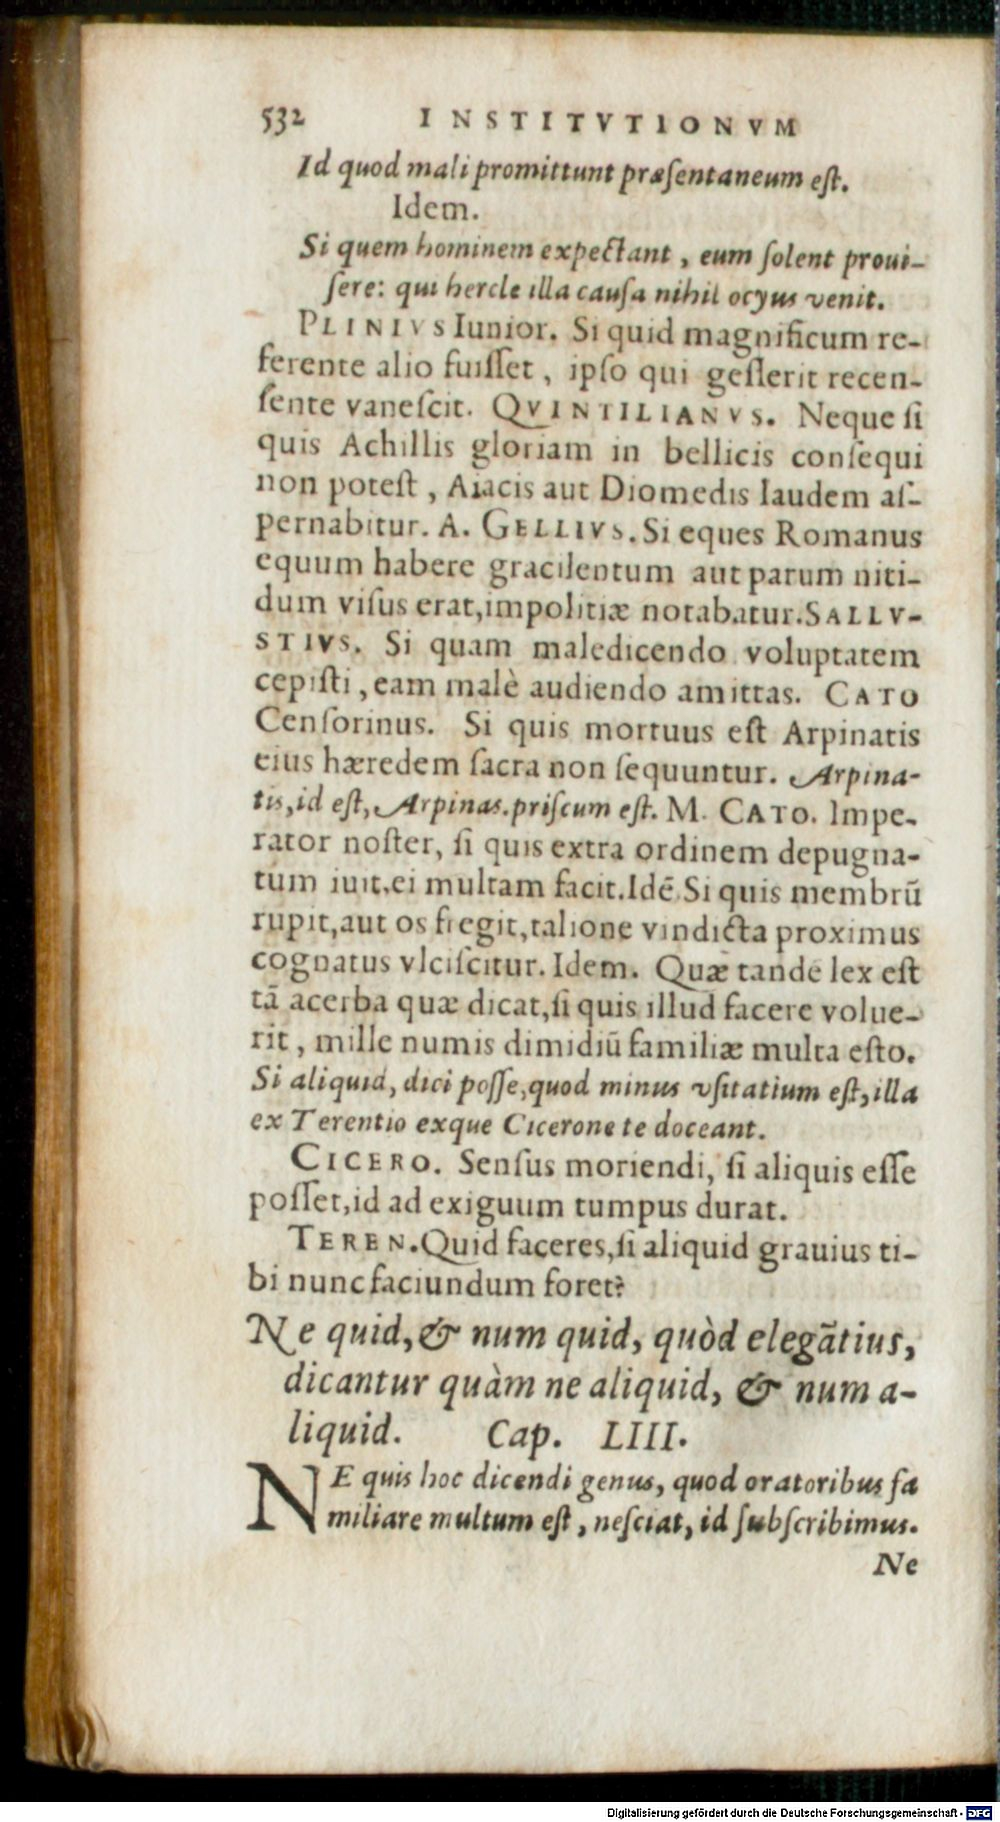 532 INSTITVTIONVM
Id quod mali promittunt præſentaneum eſt.
Idem.
Si quem hominem expectant, eum ſolent proui-
ſere: qui hercle illa cauſa nihil ocyus venit.
PLINIVS Iunior. Si quid magnificum re-
ferente alio fuiſſet, ipſo qui geſſerit recen-
ſente vaneſcit. QVINTILIANVS. Neque ſi
quis Achillis gloriam in bellicis conſequi
non poteſt, Aiacis aut Diomedis laudem aſ-
pernabitur. A. GELLIVS. Si eques Romanus
equum habere gracilentum aut parum niti-
dum viſus erat, impolitiæ notabatur. SALLV-
STIVS. Si quam maledicendo voluptatem
cepiſti, eam malè audiendo amittas. CATO
Cenſorinus. Si quis mortuus eſt Arpinatis
eius hæredem ſacra non ſequuntur. Arpina-
tis, id eſt, Arpinas. priſcum eſt. M. CATO. Impe-
rator noſter, ſi quis extra ordinem depugna-
tum iuit, ei multam facit. Idē Si quis membrū
rupit, aut os fregit, talione vindicta proximus
cognatus vlciſcitur. Idem. Quæ tande lex eſt
tā acerba quæ dicat, ſi quis illud facere volue-
rit, mille numis dimidiū familiæ multa eſto.
Si aliquid, dici poſſe, quod minus vſitatium eſt, illa
ex Terentio exque Cicerone te doceant.
CICERO. Senſus moriendi, ſi aliquis eſſe
poſſet, id ad exiguum tumpus durat.
TEREN. Quid faceres, ſi aliquid grauius ti-
bi nunc faciundum foret?
Ne quid, & num quid, quòd elegātius,
dicantur quàm ne aliquid, & num a-
liquid. Cap. LIII.
NE quis hoc dicendi genus, quod oratoribus fa
miliare multum eſt, neſciat, id ſubſcribimus.
Ne
Digitalisierung gefördert durch die Deutsche Forschungsgemeinschaft - DFG